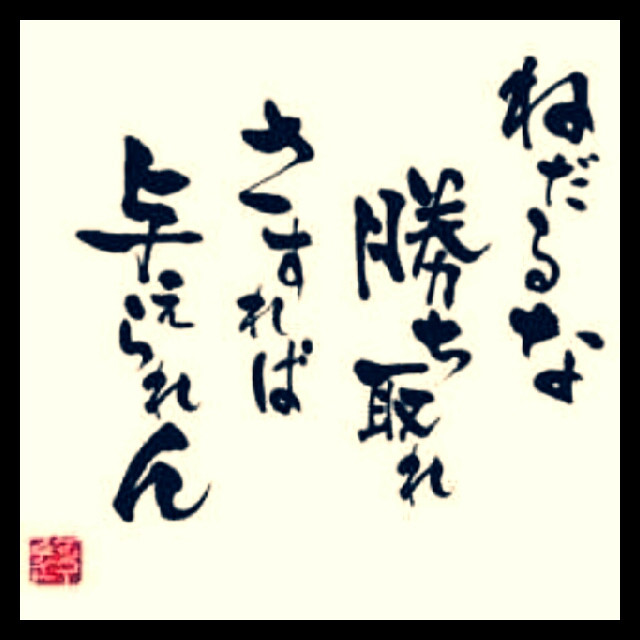 ねだるな
勝ち取れ
さすれば
与えられん